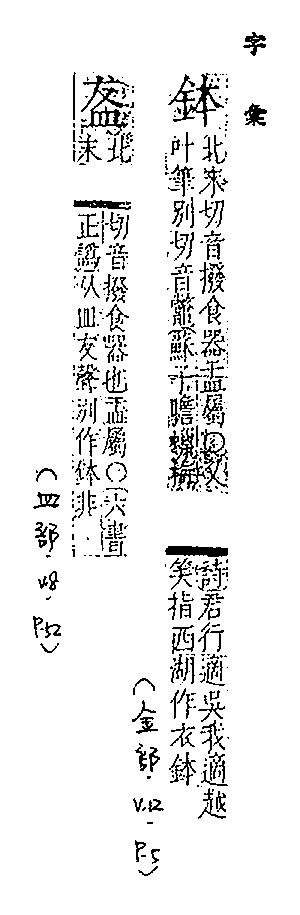 字彙
鉢
北末切音撥食器盂屬〇又
叶筆別切音鼈蘇子瞻
詩君行適吳我適越
笑指西湖作衣鉢
(金部.V.12-P.5)
盋
北末
切音撥食器也盂屬〇六書
正譌从皿犮聲別作鉢非.
(皿部.V8-P.52)